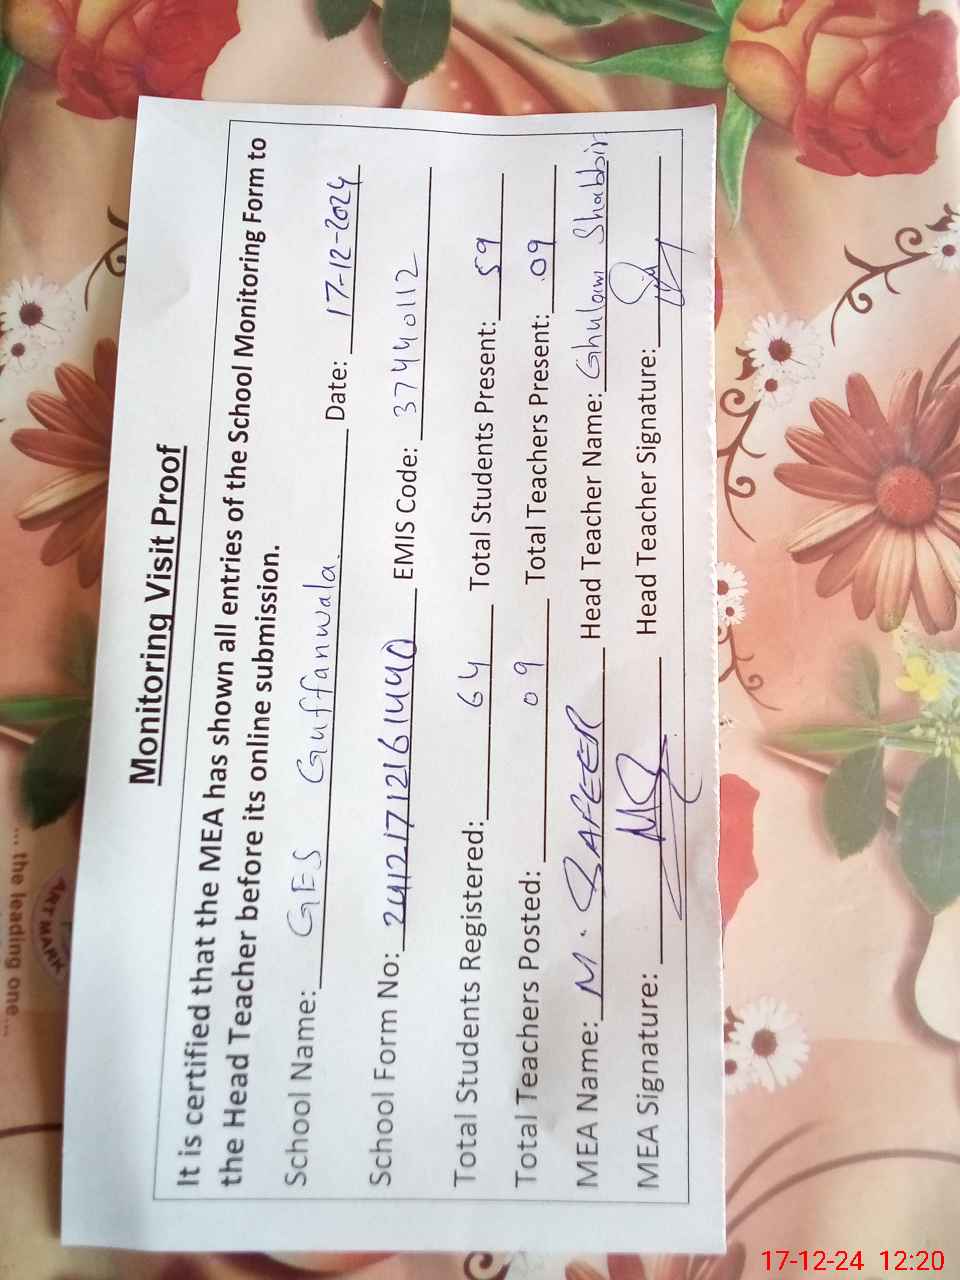 Monitoring Visit Proof
It is certified that the MEA has shown all entries of the School Monitoring Form to
the Head Teacher before its online submission.
School Name: GES Guffanwala. Date: 17-12-2024
School Form No: 24121712161440 EMIS Code: 37440112
Total Students Registered: 64 Total Students Present: 59
Total Teachers Posted: 09 Total Teachers Present: 09
MEA Name: M. SAFEER Head Teacher Name: Ghulam Shabbir
MEA Signature: Head Teacher Signature:
... the leading one...
ART MARK
17-12-24 12:20